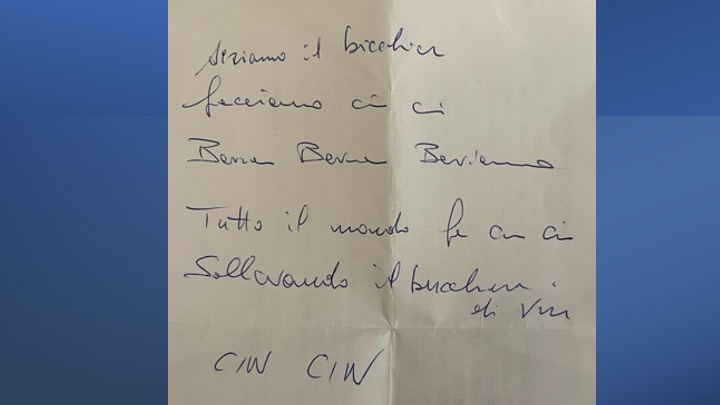 Alziamo il bicchier
facciamo cin ci
Bevia Bevia Beviamo
Tutto il mondo fa cin cin
Sollevando il bicchier
di Vin
CIN CIN